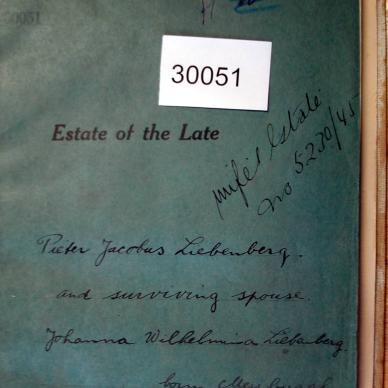 30051
30051
Estate of the Late
wife's Estate
no 5230/45
Pieter Jacobus Liebenberg.
and surviving spouse.
Johanna Wilhelmina Liebenberg
born